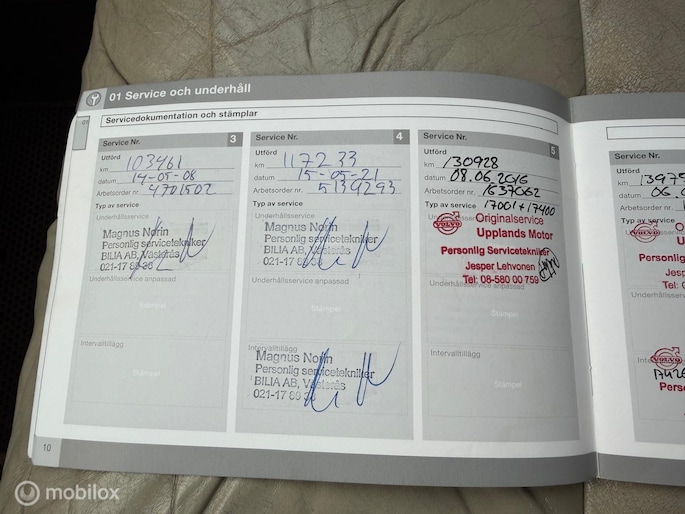 01 Service och underhåll
Servicedokumentation och stämplar
01
Service Nr. 3
Utförd
km 103461
datum 14-05-08
Arbetsorder nr. 4701502
Typ av service
Underhållsservice
Magnus Norin
Personlig servicetekniker
BILIA AB, Västerås
021-17 88 36
Underhållsservice anpassad
Stämpel
Intervalltillägg
Stämpel
10
Service Nr. 4
Utförd
km 117233
datum 15-05-21
Arbetsorder nr. 5139293
Typ av service
Underhållsservice
Magnus Norin
Personlig servicetekniker
BILIA AB, Västerås
021-17
Underhållsservice anpassad
Stämpel
Intervalltillägg
Magnus Norin
Personlig servicetekniker
BILIA AB, Västerås
021-17
Stämpel
Service Nr. 5
Utförd
km 130928
datum 08.06.2016
Arbetsorder nr. 1637062
Typ av service 17001+17400
VOLVO Originalservice
Upplands Motor
Personlig Servicetekniker
Jesper Lehvonen
Tel: 08-580 00 759
Underhållsservice anpassad
Stämpel
Intervalltillägg
Stämpel
Service Nr.
Utförd
km 1397
datum 06.
Arbetsorder nr.
Typ av service
Underhållsservice
VOLVO
Upp
Personlig
Jesp
Tel: 0
Underhållsservice
Intervalltillägg
VOLVO
Perso
mobilox